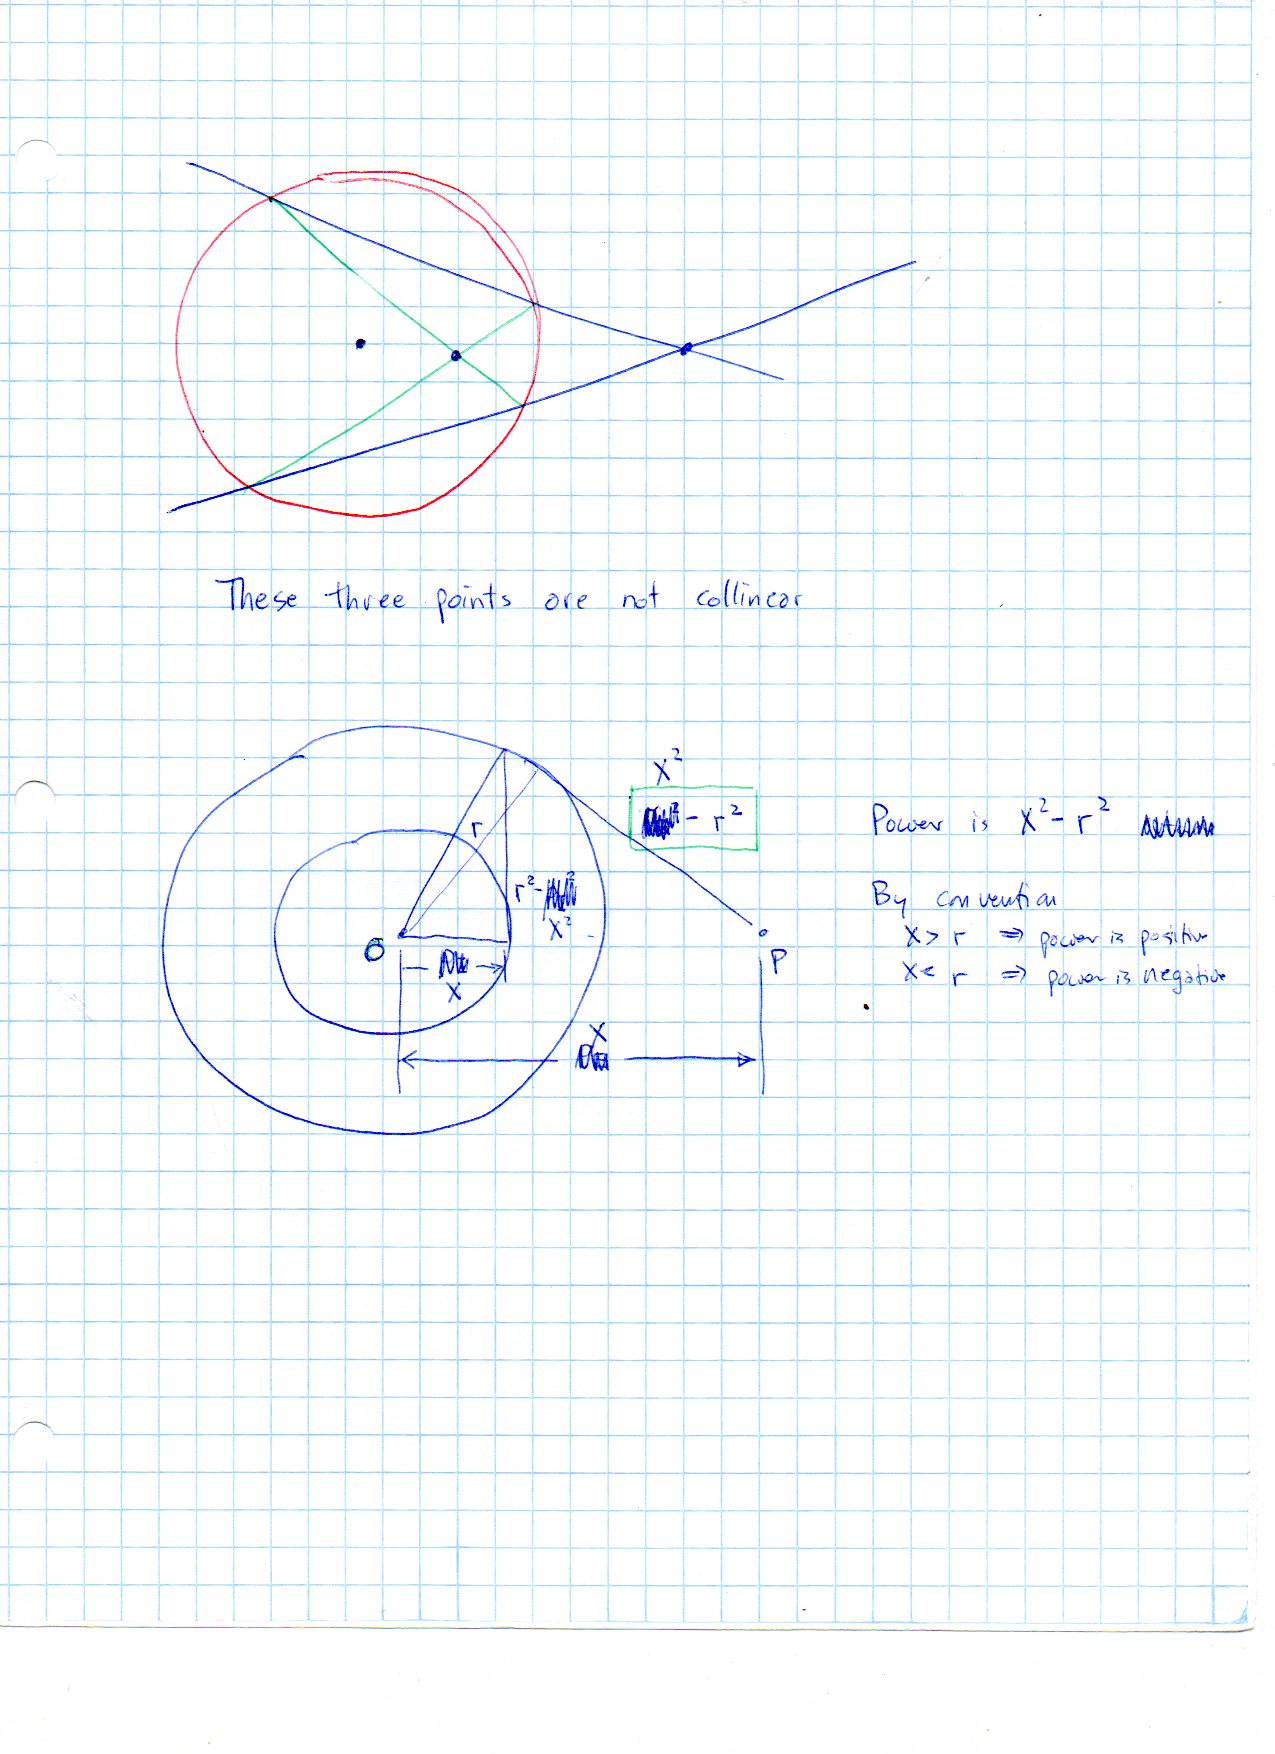 These three points are not collinear
x²
- r²
Power is x² - r²
r
r² -
x²
By convention
x > r ⇒ power is positive
x < r ⇒ power is negative
O
P
x
x